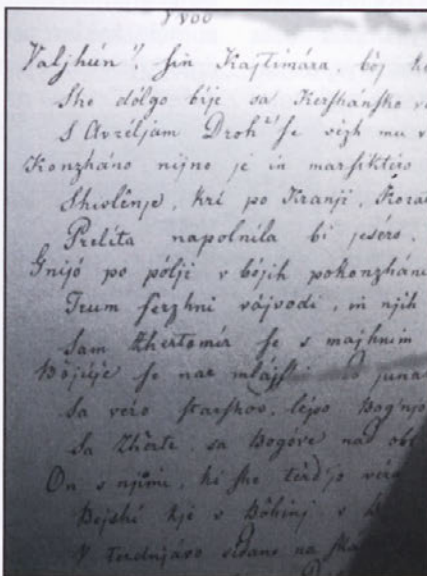 Valjhún¹⁾, ſin Kajtimára, bój
She dólgo bíje sa Kerſhánſko
S Avréljam Droh²⁾ ſe vèzh mu
Konzháno nijno je in marſiktéro
Shivlênje, krí po Kranji,
Prelíta napolníla bi jeséro,
Gnijó po pólji v bójih pokonzháni
Trum ſerzhni vájvodi, in njih
Sam Zhertomír ſe s majhnim
Bojúje ſe nar mlájſhi
Sa véro ſtarſhov, lépo
Sa Zhèrte, sa Bogove nad
On s njimi, ki ſhe terd'jo
Bejshí kje v Bóhinj v
V terdnjávo sidano na